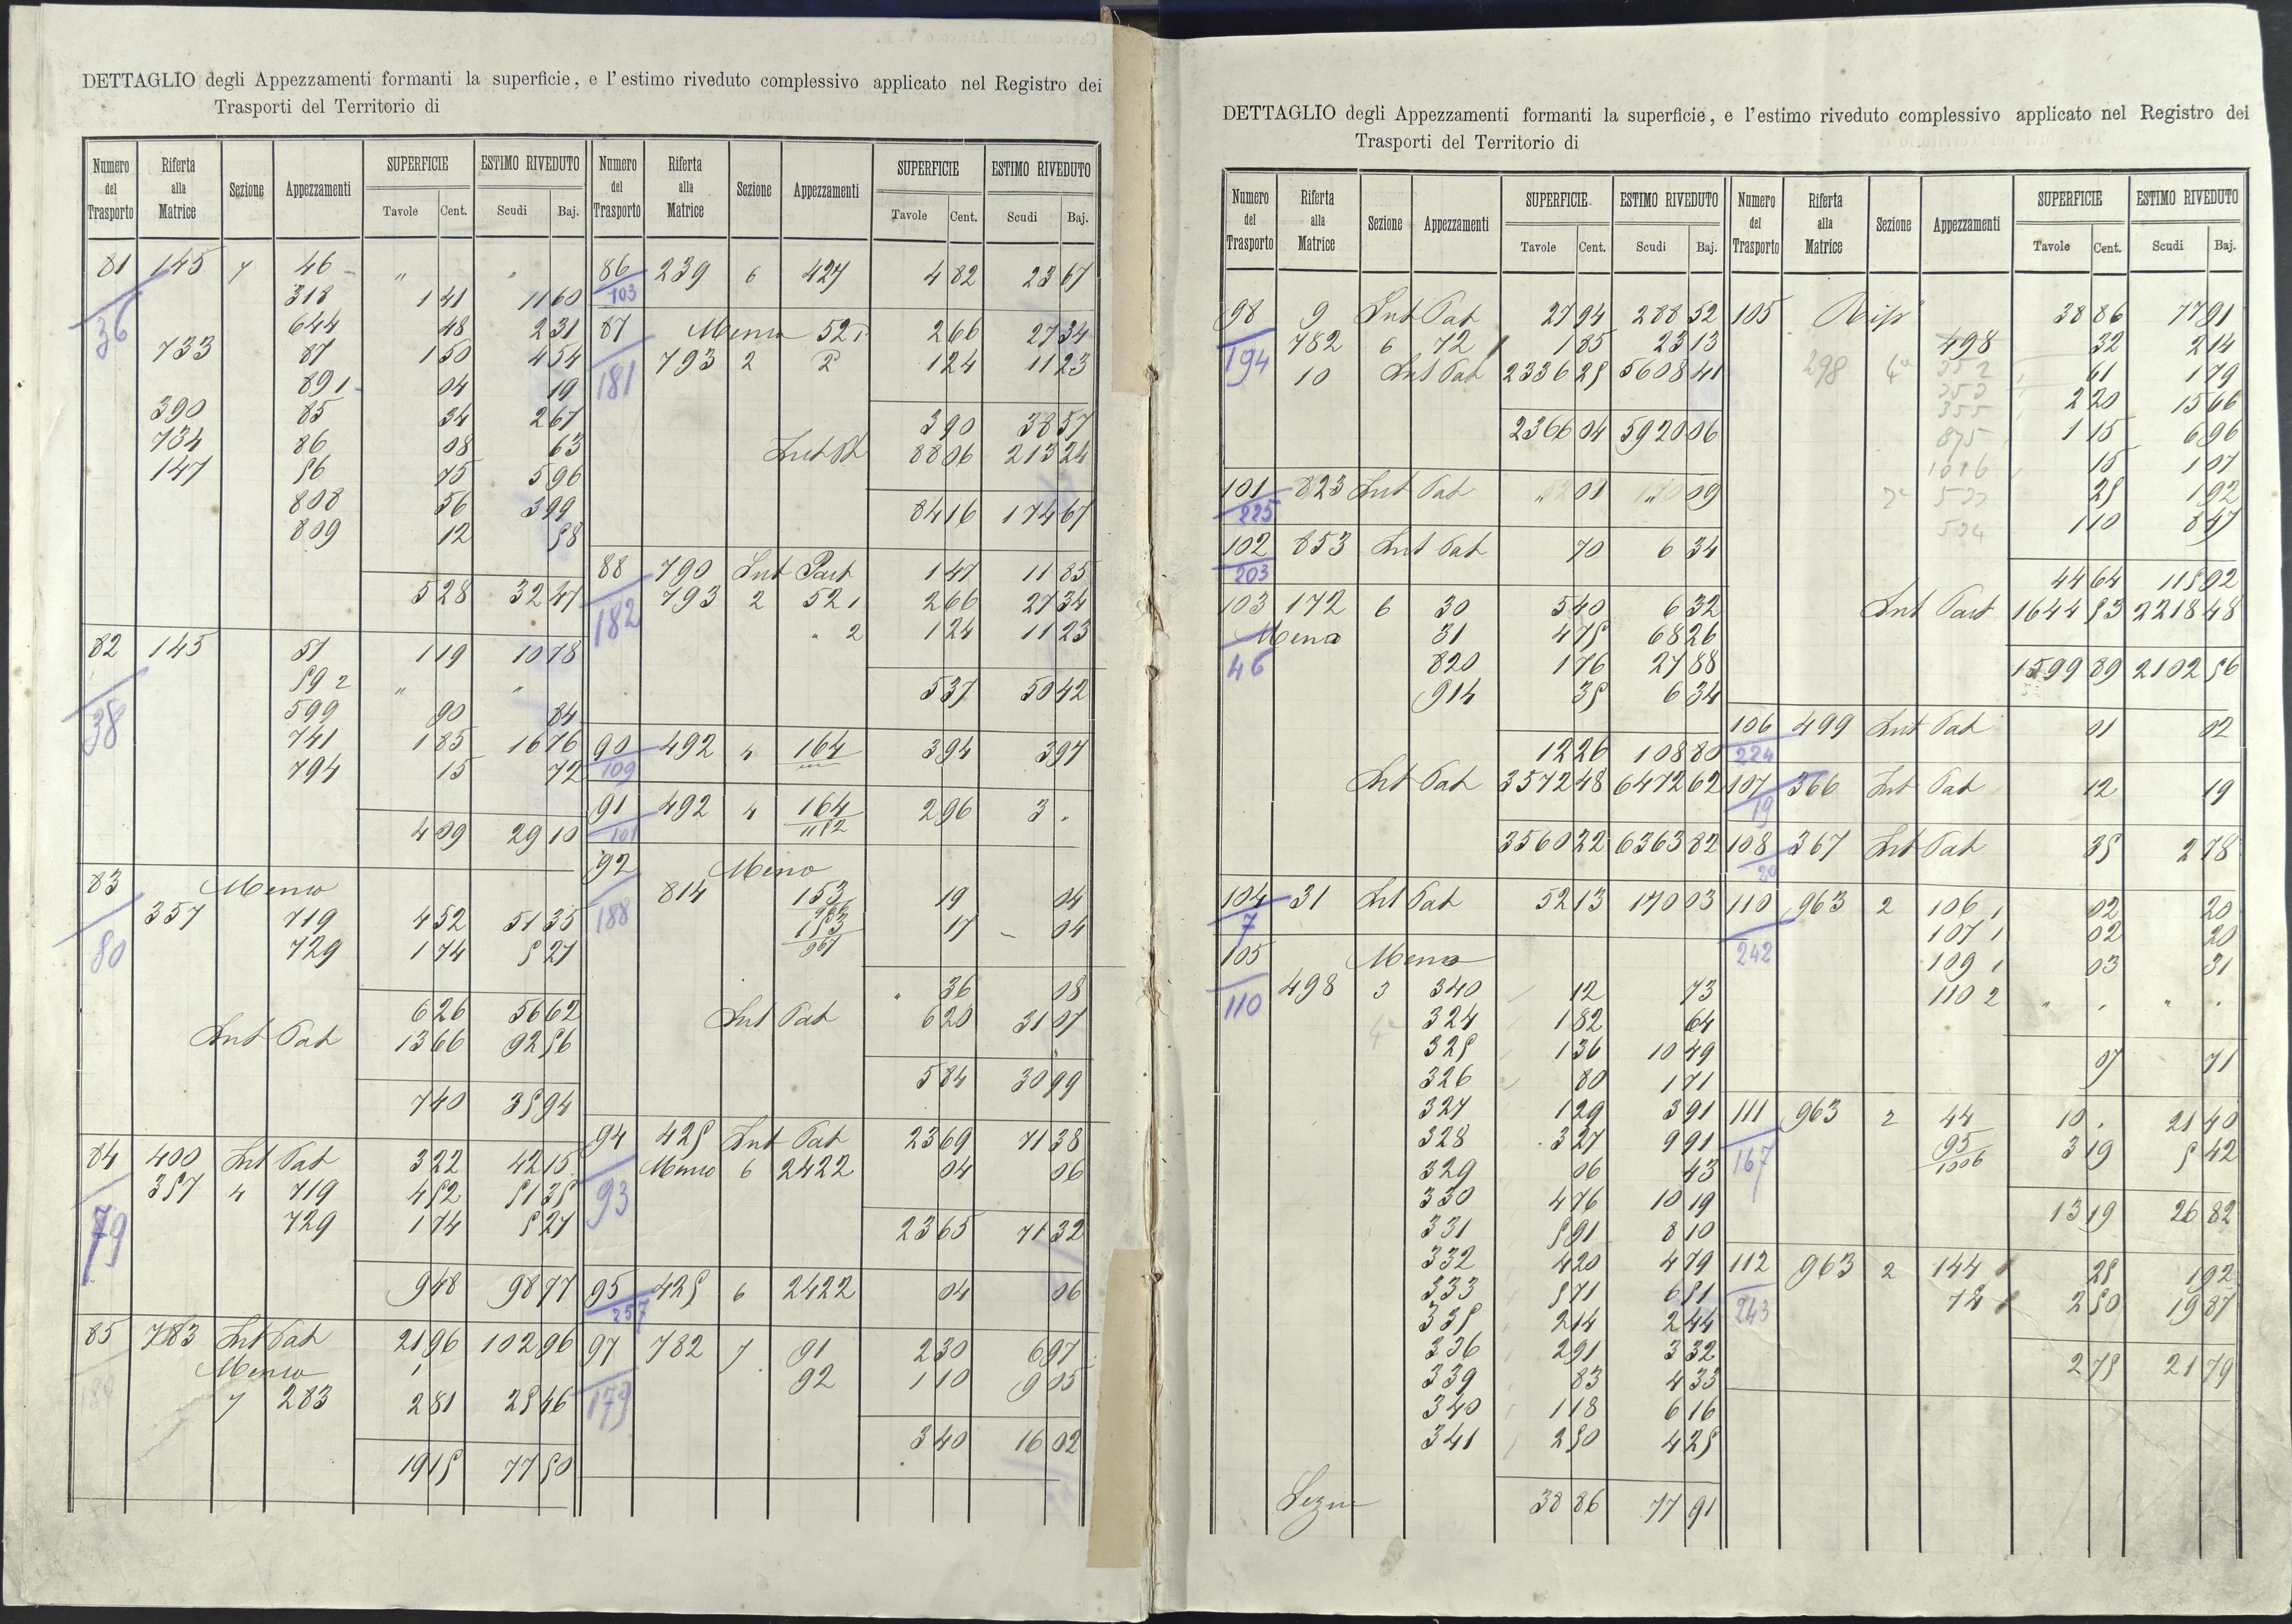 DETTAGLIO degli Appezzamenti formanti la superficie, e l'estimo riveduto complessivo applicato nel Registro dei
Trasporti del Territorio di
Numero del Trasporto Riferta alla Matrice Sezione Appezzamenti SUPERFICIE Tavole Cent. ESTIMO RIVEDUTO Scudi Baj.
81 145 7 46 " "
36
318 1 41 11 60
644 48 2 31
733 87 1 50 4 54
891 04 19
390 85 34 2 67
734 86 08 63
147 56 75 5 96
808 56 3 99
809 12 58
5 28 32 47
82 145 51 1 19 10 78
38
59 2 " "
599 90 84
741 1 85 16 76
794 15 72
4 09 29 10
83 Meno
80
357 719 4 52 51 35
729 1 74 5 27
6 26 56 62
Int Pat 13 66 92 56
7 40 35 94
84 400 Int Pat 3 22 42 15
79
357 4 719 4 52 51 35
729 1 74 5 27
9 48 98 77
85 783 Int Pat 21 96 102 96
Meno
7 283 2 81 25 46
19 15 77 50
Numero del Trasporto Riferta alla Matrice Sezione Appezzamenti SUPERFICIE Tavole Cent. ESTIMO RIVEDUTO Scudi Baj.
86 239 6 427 4 82 23 67
103
87 Meno 52 1 2 66 27 34
181
793 2 2 1 24 11 23
3 90 38 57
88 06 213 24
84 16 174 67
88 790 Int Part 1 47 11 85
182
793 2 52 1 2 66 27 34
" 2 1 24 11 23
5 37 50 42
90 492 4 164 3 94 3 97
109
91 492 4 164/1182 2 96 3 .
101
92 Meno
188
814 153/966 19 04
153/967 17 04
" 36 08
Int Pat 6 20 31 07
5 84 30 99
94 425 Int Pat 23 69 71 38
93
Meno 6 2422 04 06
23 65 71 32
95 425 6 2422 04 06
257
97 782 7 91 2 30 6 97
179
92 1 10 9 05
3 40 16 02
DETTAGLIO degli Appezzamenti formanti la superficie, e l'estimo riveduto complessivo applicato nel Registro dei
Trasporti del Territorio di
Numero del Trasporto Riferta alla Matrice Sezione Appezzamenti SUPERFICIE Tavole Cent. ESTIMO RIVEDUTO Scudi Baj.
98 9 Int Pat 27 94 288 52
194
782 6 72 1 85 23 13
10 Int Pat 2336 25 5608 41
2366 04 5920 06
101 823 Int Pat " 01 " 09
225
102 853 Int Pat 70 6 34
203
103 172 6 30 5 40 6 32
Meno 31 4 75 68 26
46
820 1 76 27 88
914 35 6 34
12 26 108 80
Int Pat 3572 48 6472 62
3560 22 6363 82
104 31 Int Pat 52 13 170 03
7
105 Meno
110
498 3 340 12 73
4a 324 1 82 64
325 1 36 10 49
326 80 1 71
327 1 29 3 91
328 3 27 9 91
329 06 43
330 4 76 10 19
331 5 91 8 10
332 4 20 4 79
333 5 71 6 51
335 2 14 2 44
336 2 91 3 32
339 83 4 33
340 1 18 6 16
341 2 50 4 25
38 86 77 91
Numero del Trasporto Riferta alla Matrice Sezione Appezzamenti SUPERFICIE Tavole Cent. ESTIMO RIVEDUTO Scudi Baj.
105 38 86 77 91
498 32 2 14
298 4a 352 61 1 79
353 2 20 15 66
355
875 1 15 6 96
1016 15 1 07
25 1 92
534 1 10 8 47
44 64 115 92
Int Part 1644 53 2218 48
1599 89 2102 56
106 499 Int Pat 01 02
224
107 366 Int Pat 12 19
19
108 367 Int Pat 35 2 78
20
110 963 2 106 1 02 20
242
107 1 02 20
109 1 03 31
110 2 " . " .
07 71
111 963 2 44 10 . 21 40
167
95/1006 3 19 5 42
13 19 26 82
112 963 2 144 25 1 92
243
74 2 50 19 87
2 75 21 79